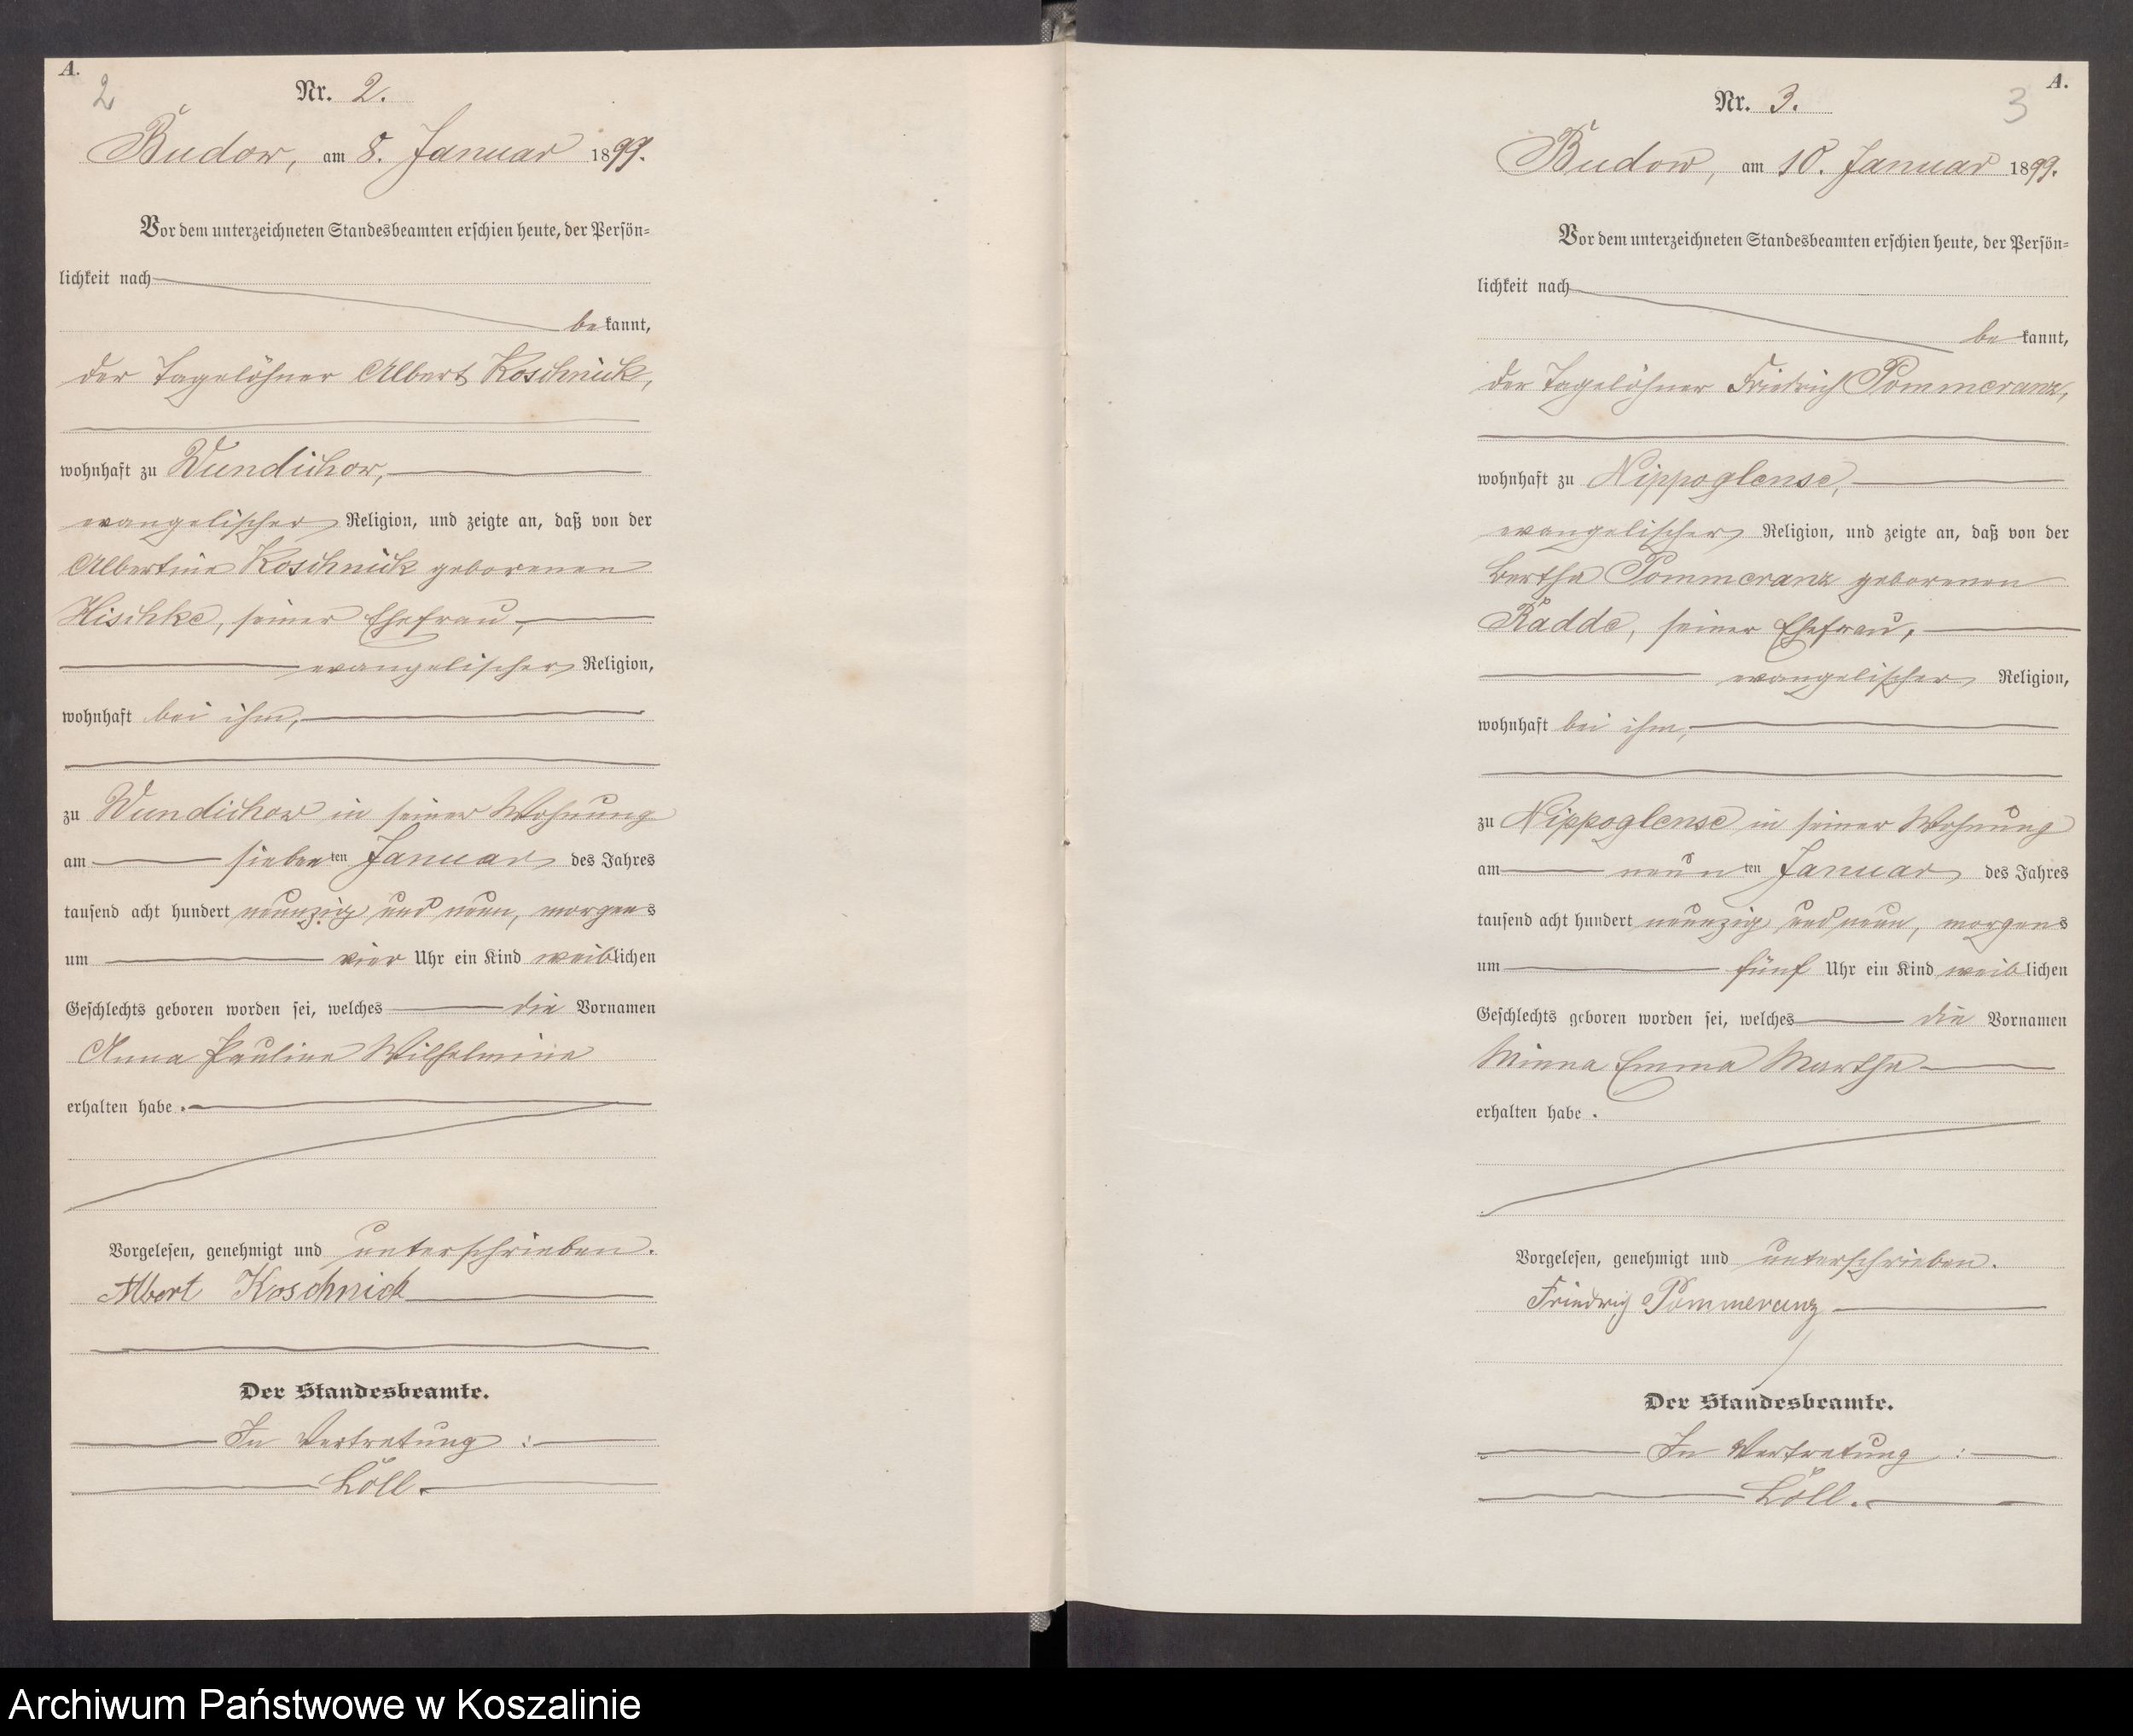 A.
2
Nr. 2.
Budow, am 8. Januar 1899.
Vor dem unterzeichneten Standesbeamten erschien heute, der Persön=
lichkeit nach
bekannt,
der Tagelöhner Albert Koschnick,
wohnhaft zu Wundichow,
evangelischer Religion, und zeigte an, daß von der
Albertine Koschnick geborenen
Hischke, seiner Ehefrau,
evangelischer Religion,
wohnhaft bei ihm,
zu Wundichow in seiner Wohnung
am siebenten Januar des Jahres
tausend acht hundert neunzig und neun, morgens
um vier Uhr ein Kind weiblichen
Geschlechts geboren worden sei, welches die Vornamen
Anna Pauline Wilhelmine
erhalten habe.
Vorgelesen, genehmigt und unterschrieben.
Albert Koschnick
Der Standesbeamte.
In Vertretung:
Löll.
A.
3
Nr. 3.
Budow, am 10. Januar 1899.
Vor dem unterzeichneten Standesbeamten erschien heute, der Persön=
lichkeit nach
bekannt,
der Tagelöhner Friedrich Pommeranz,
wohnhaft zu Nippoglense,
evangelischer Religion, und zeigte an, daß von der
Bertha Pommeranz geborenen
Radde, seiner Ehefrau,
evangelischer Religion,
wohnhaft bei ihm,
zu Nippoglense in seiner Wohnung
am neunten Januar des Jahres
tausend acht hundert neunzig und neun, morgens
um fünf Uhr ein Kind weiblichen
Geschlechts geboren worden sei, welches die Vornamen
Minna Emma Martha
erhalten habe.
Vorgelesen, genehmigt und unterschrieben.
Friedrig Pommeranz
Der Standesbeamte.
In Vertretung:
Löll.
Archiwum Państwowe w Koszalinie